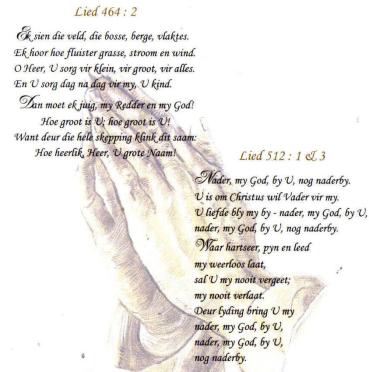 Lied 464 : 2
Ek sien die veld, die bosse, berge, vlaktes.
Ek hoor hoe fluister grasse, stroom en wind.
O Heer, U sorg vir klein, vir groot, vir alles.
En U sorg dag na dag vir my, U kind.
Dan moet ek juig, my Redder en my God!
Hoe groot is U; hoe groot is U!
Want deur die hele skepping klink dit saam:
Hoe heerlik, Heer, U grote Naam!
Lied 512 : 1 & 3
Nader, my God, by U, nog naderby.
U is om Christus wil Vader vir my.
U liefde bly my by - nader, my God, by U,
nader, my God, by U, nog naderby.
Waar hartseer, pyn en leed
my weerloos laat,
sal U my nooit vergeet;
my nooit verlaat.
Deur lyding bring U my
nader, my God, by U,
nader, my God, by U,
nog naderby.